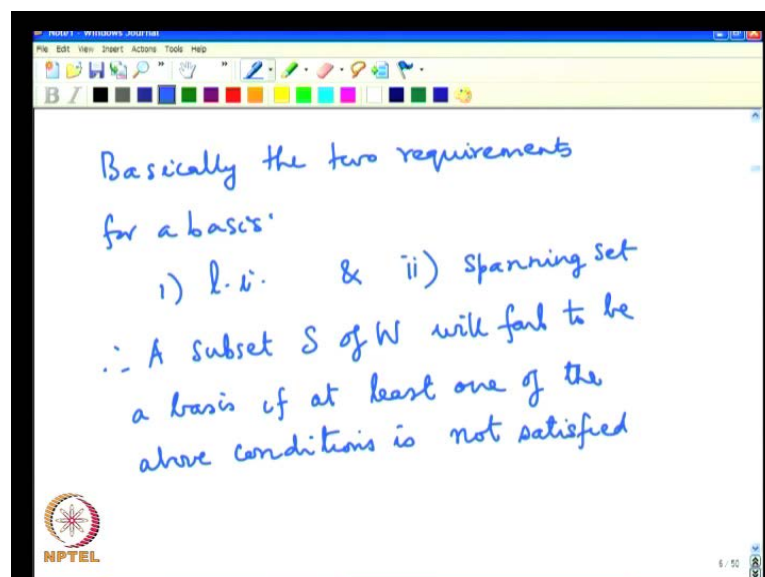 Note1 - Windows Journal
File Edit View Insert Actions Tools Help
B I
Basically the two requirements
for a basis:
i) l.i. & ii) Spanning set
∴ A subset S of W will fail to be
a basis if at least one of the
above conditions is not satisfied
NPTEL
6 / 50